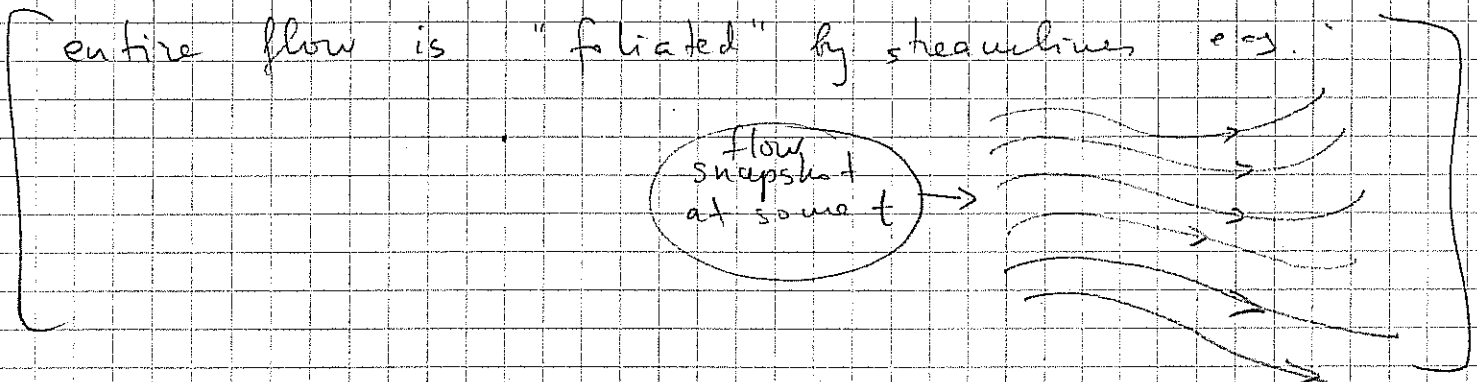 entire flow is "foliated" by streamlines e.g.
flow
snapshot
at some t